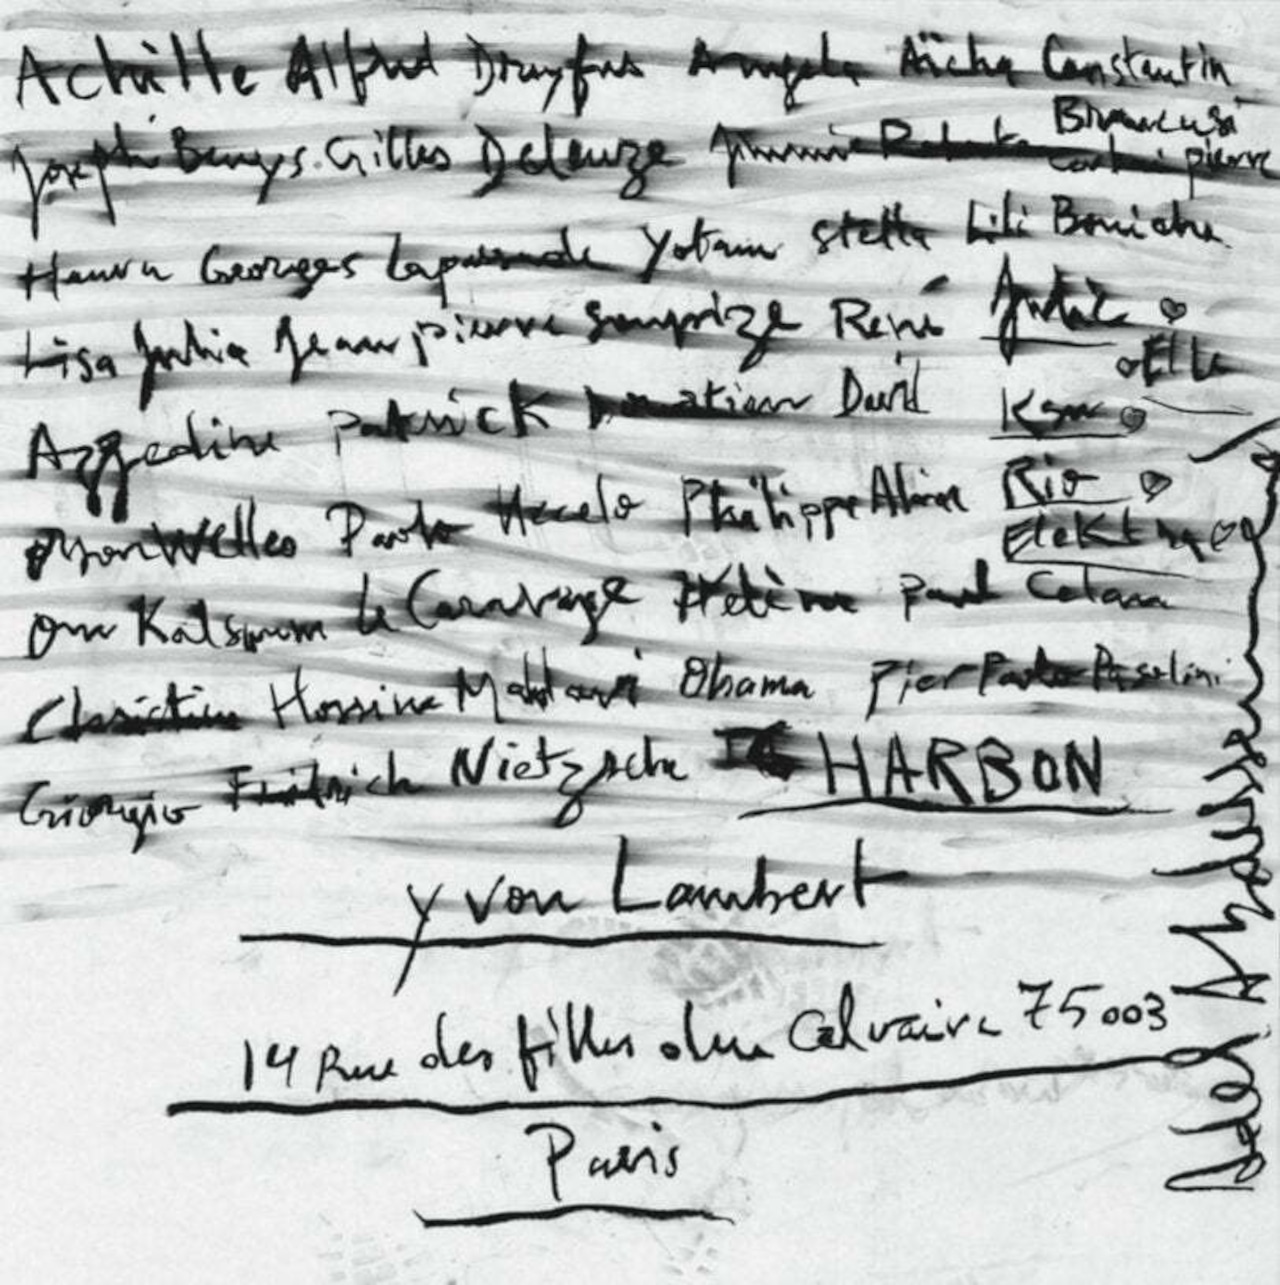 Achille Alfred Dreyfus Angela Aïcha Constantin
Brancusi
Joseph Beuys Gilles Deleuze pierre
Georges Lapassade Yotam stella Lili Boniche
Lisa Julia Jean pierre surprize René Julie
Elle
Azzedine Patrick David
orson Welles Paolo Uccelo Philippe Alain Rio
Elektra
Om Kalsoum Le Caravage Hélène paul Celan
Christian Hossine Obama Pier Paolo Pasolini
Giorgio Friedrich Nietzsche HARBON
yvon Lambert
14 Rue des filles du Calvaire 75003
Paris
Adel Abdessemed